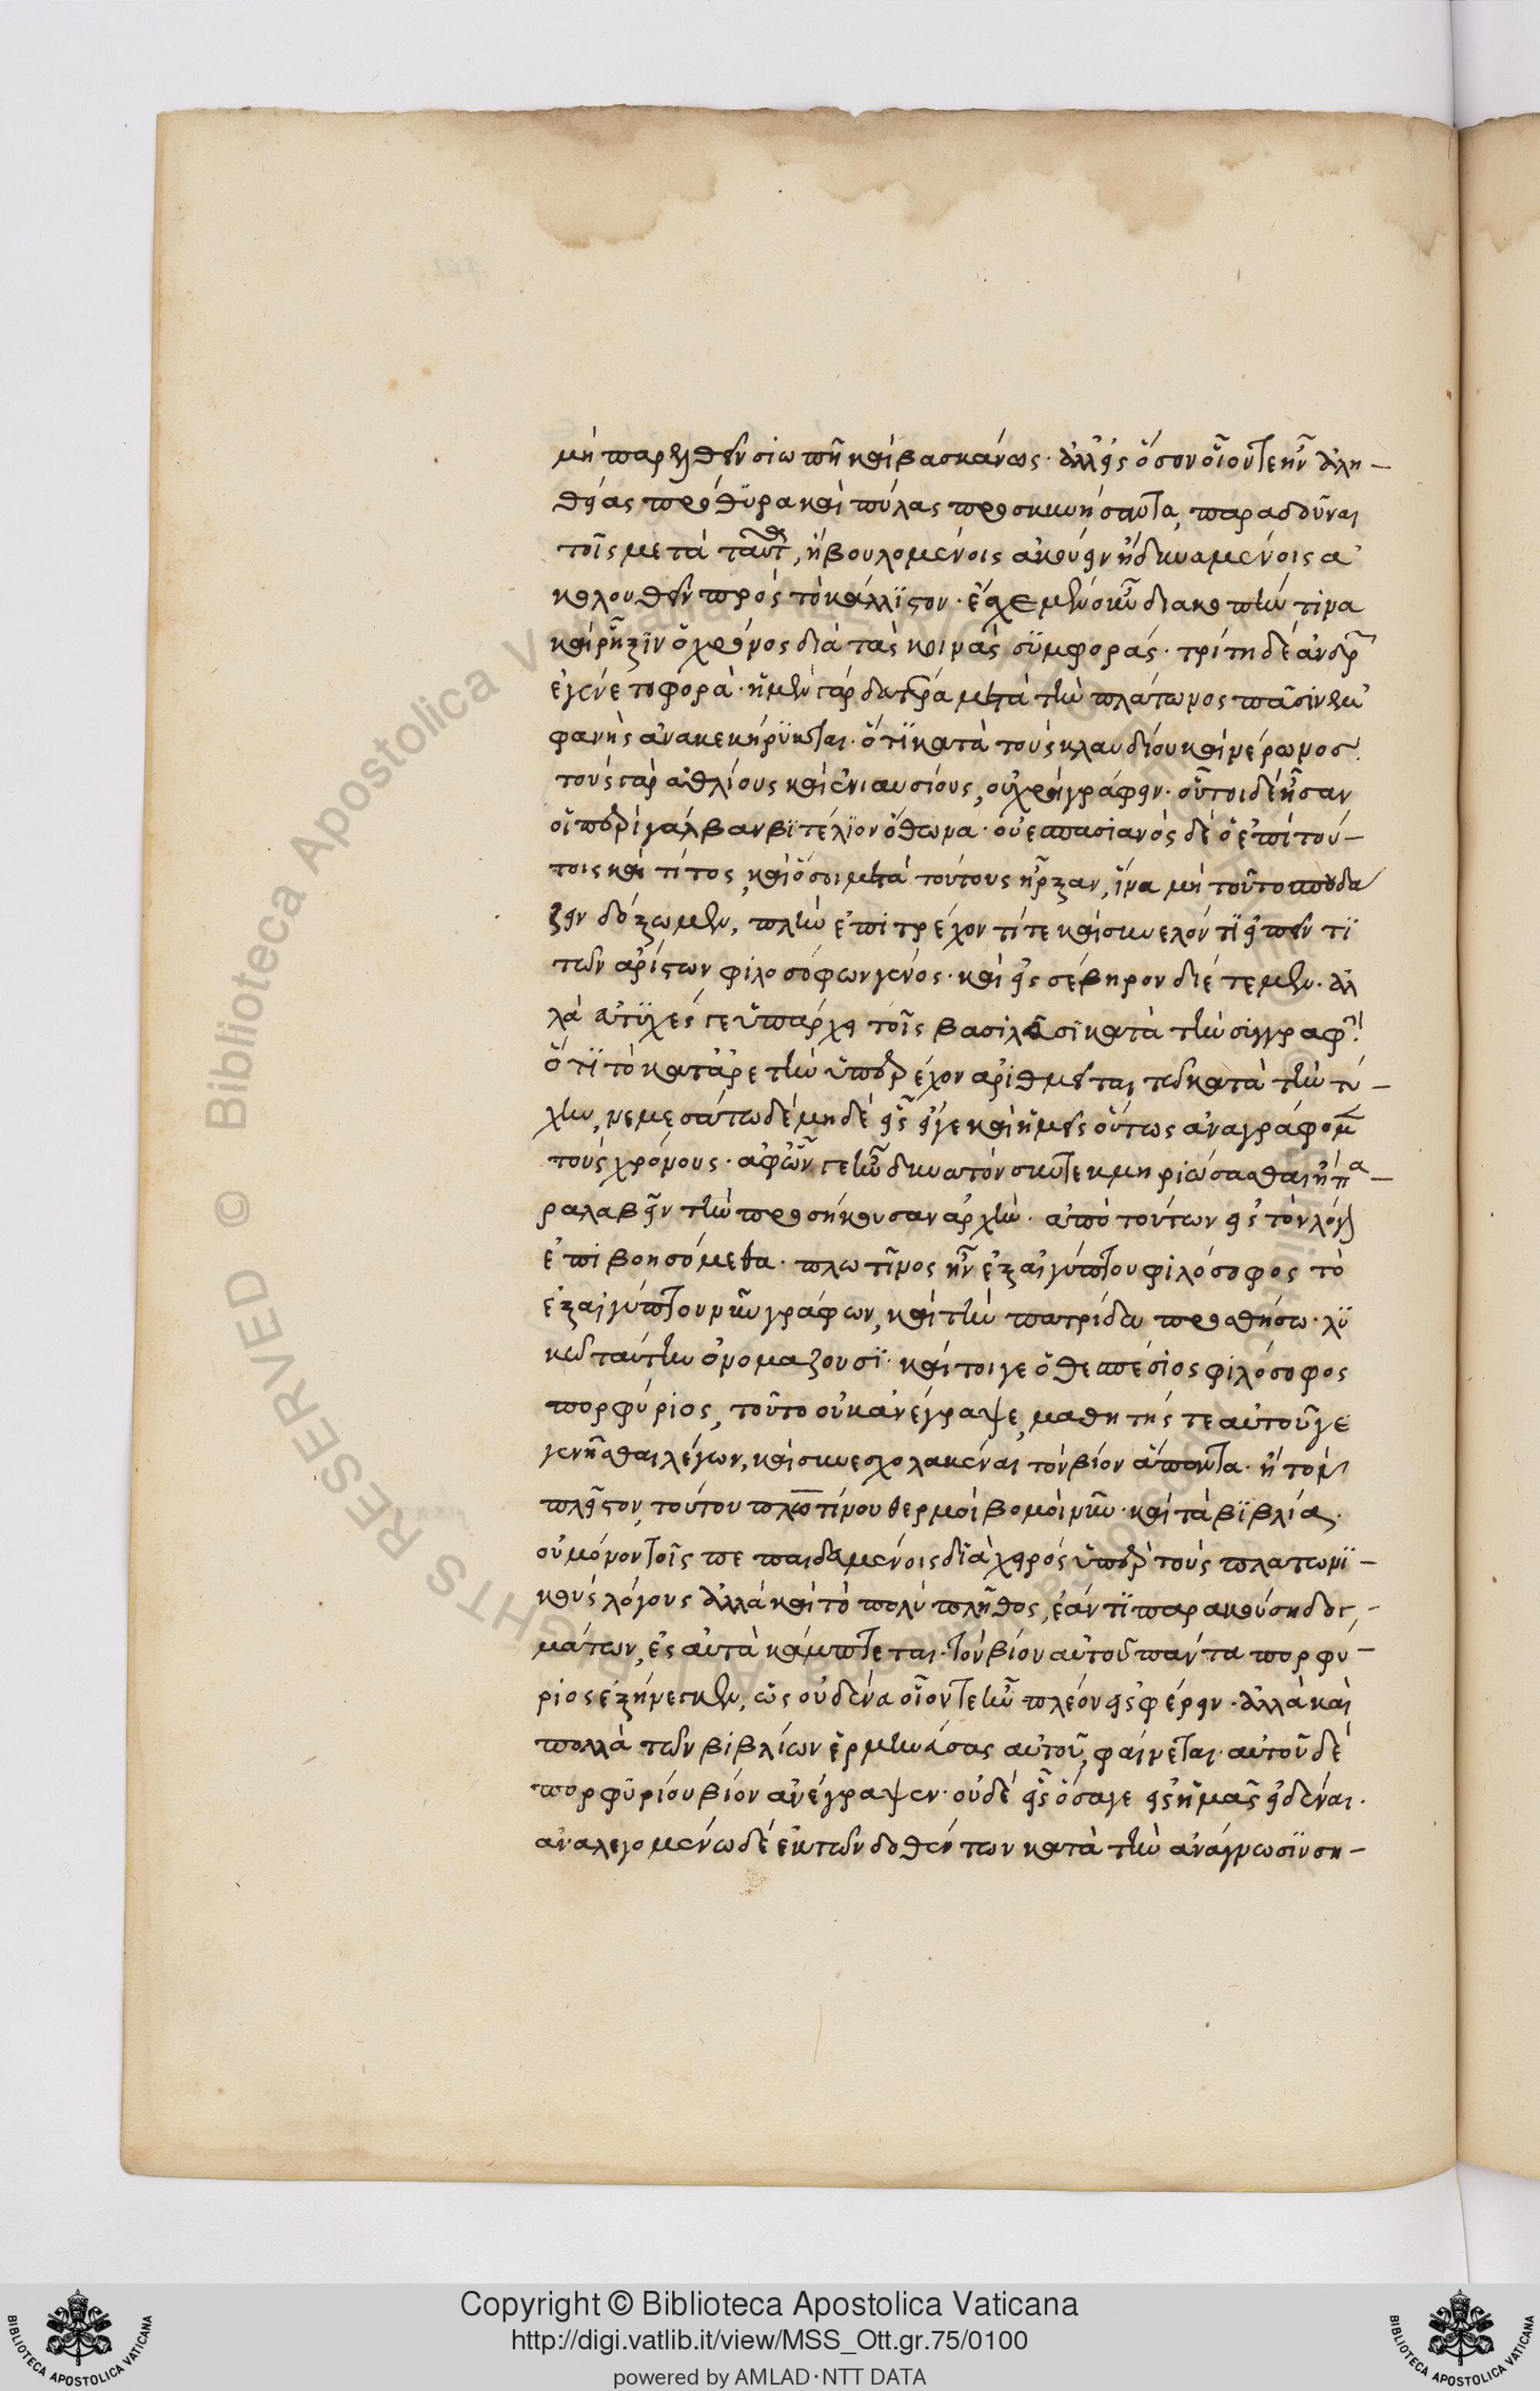 μὴ παρελθεῖν σιωπῇ καὶ βασκάνως· ἀλλ' εἰς ὅσον οἷόν τε ἦν ἀλη-
θείας πρόθυρα καὶ πύλας προσκυνήσαντα, παραδοῦναι
τοῖς μετὰ ταῦτα, ἢ βουλομένοις ἀκούειν ἢ δυναμένοις ἀ
κολουθεῖν πρὸς τὸ κάλλιστον· ἔσχε μὲν οὖν διακοπήν τινα
καὶ ῥῆξιν ὁ χρόνος διὰ τὰς κοινὰς συμφοράς· τρίτη δὲ ἀνδρῶν
ἐγένετο φορὰ· ἡ μὲν γὰρ δευτέρα μετὰ τὴν πλάτωνος πᾶσιν ἐμ
φανὴς ἀνακεκήρυκται· ὅτι κατὰ τοὺς κλαυδίου καὶ νέρωνος·
τοὺς γὰρ ἀθλίους καὶ ἐνιαυσίους, οὐ χρὴ γράφειν· οὗτοι δὲ ἦσαν
οἱ περὶ γάλβαν βιτέλιον ὄθωνα· οὐεσπασιανὸς δὲ ὁ ἐπὶ τού-
τοις καὶ τίτος, καὶ ὅσοι μετὰ τούτους ἦρξαν, ἵνα μὴ τοῦτο σπουδά
ζειν δόξωμεν, πλὴν ἐπιτρέχοντί τε καὶ συνελόντι εἰπεῖν τι
τῶν ἀρίστων φιλοσόφων γένος· καὶ εἰς σέβηρον διέτεμεν· ἀλ
λὰ εὐτυχές γε ὑπάρχει τοῖς βασιλεῦσι κατὰ τὴν συγγραφὴν·
ὅτι τὸ κατ' ἀρετὴν ὑπερέχον ἀριθμεῖται τῶ κατὰ τὴν τύ-
χην, νεμεσάτω δὲ μηδὲ εἷς εἴγε καὶ ἡμεῖς οὕτως ἀναγράφομεν
τοὺς χρόνους· ἀφ' ὧν γε ἦν δυνατὸν συντεκμηριώσασθαι ἢ πα-
ραλαβεῖν τὴν προσήκουσαν ἀρχὴν· ἀπὸ τούτων εἰς τὸν λόγον
ἐπιβησόμεθα· πλωτῖνος ἦν ἐξ αἰγύπτου φιλόσοφος τὸ
ἐξ αἰγύπτου νῦν γράφων, καὶ τὴν πατρίδα προσθήσω· λυ
κὼ ταύτην ὀνομάζουσι· καίτοιγε ὁ θεσπέσιος φιλόσοφος
πορφύριος, τοῦτο οὐκ ἀνέγραψε, μαθητής τε αὐτοῦ γε
γενῆσθαι λέγων, καὶ συνεσχολακέναι τὸν βίον ἅπαντα· ἢ τὸν
πλεῖστον, τούτου πλωτίνου θερμοὶ βομοὶ νῦν· καὶ τὰ βιβλία
οὐ μόνον τοῖς πεπαιδευμένοις διὰ χειρὸς ὑπὲρ τοὺς πλατωνι-
κοὺς λόγους ἀλλὰ καὶ τὸ πολὺ πλῆθος, ἐάν τι παρακούση δογ-
μάτων, ἐς αὐτὰ κάμπτεται· τὸν βίον αὐτοῦ πάντα πορφύ-
ριος ἐξήνεγκεν, ὡς οὐδένα οἷόν τε ἦν πλέον εἰσφέρειν· ἀλλὰ καὶ
πολλὰ τῶν βιβλίων ἑρμηνεύσας αὐτοῦ, φαίνεται· αὐτοῦ δὲ
πορφυρίου βίον ἀνέγραψεν· οὐδὲ εἷς ὅσαγε εἰς ἡμᾶς εἰδέναι·
ἀναλεγομένω δὲ ἐκ τῶν δοθέντων κατὰ τὴν ἀνάγνωσιν ση-
© Biblioteca Apostolica Vaticana ALL RIGHTS RESERVED
Copyright © Biblioteca Apostolica Vaticana
http://digi.vatlib.it/view/MSS_Ott.gr.75/0100
powered by AMLAD·NTT DATA
BIBLIOTECA APOSTOLICA VATICANA
BIBLIOTECA APOSTOLICA VATICANA